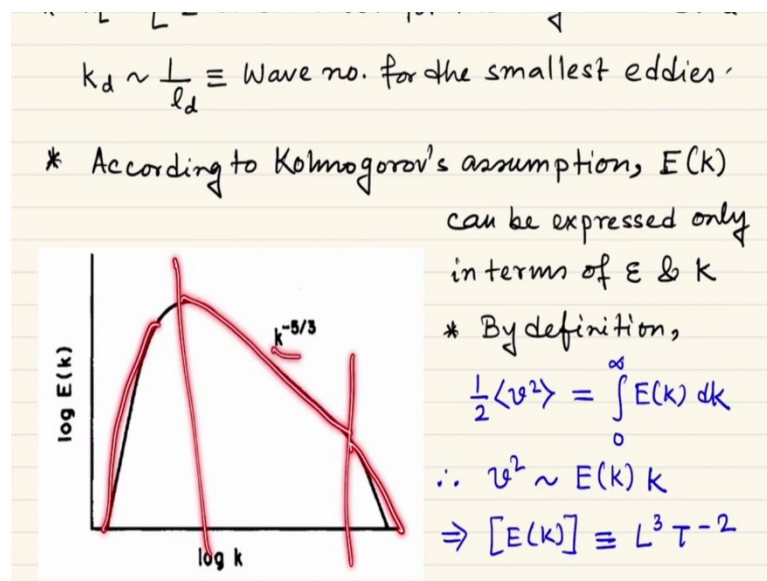 kd ~ 1/ld ≡ Wave no. for the smallest eddies.
* According to Kolmogorov's assumption, E(k)
can be expressed only
in terms of ε & k
* By definition,
1/2 <v²> = ∫₀^∞ E(k) dk
∴ v² ~ E(k) k
⇒ [E(k)] ≡ L³ T⁻²
k⁻⁵/³
log E(k)
log k